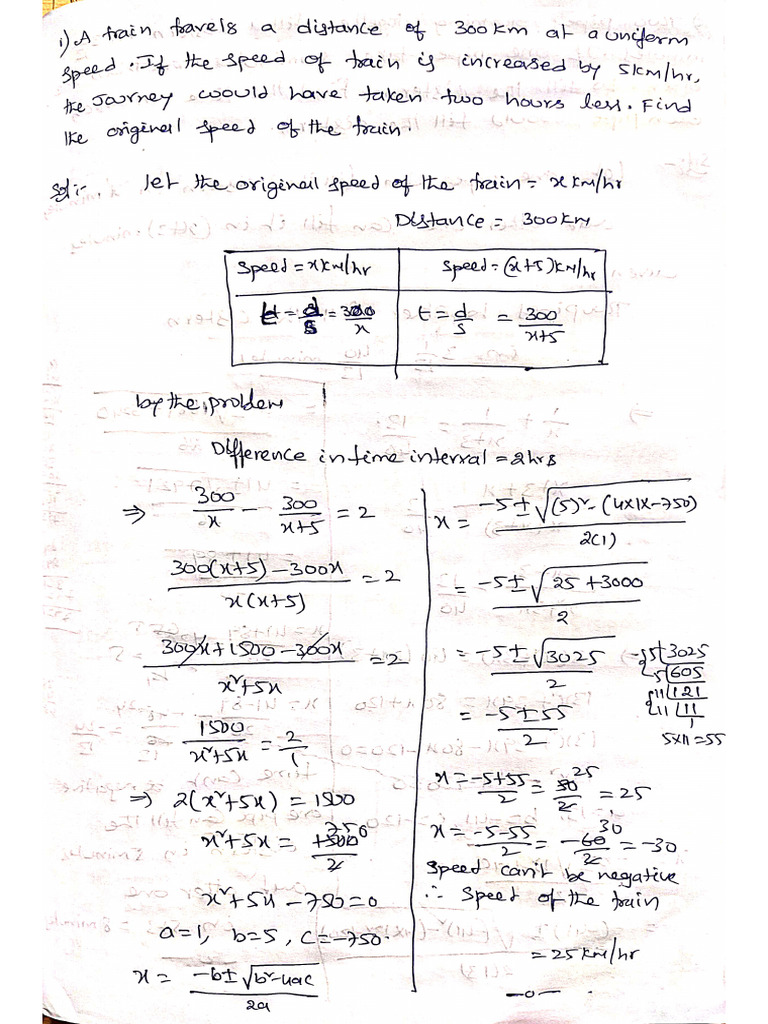 1) A train travels a distance of 300km at a uniform
speed. If the speed of train is increased by 5km/hr,
the Journey would have taken two hours less. Find
the original speed of the train.
Sol:- let the original speed of the train = x km/hr
Distance = 300km
speed = x km/hr
speed = (x+5) km/hr
t = d/s = 300/x
t = d/s = 300/x+5
by the problem
Difference in time interval = 2hrs
⇒ 300/x - 300/x+5 = 2
300(x+5) - 300x / x(x+5) = 2
300x + 1500 - 300x / x²+5x = 2
1500/x²+5x = 2/1
⇒ 2(x²+5x) = 1500
x²+5x = 1500/2 750
x²+5x - 750 = 0
a=1, b=5, c=-750.
x = -b±√b²-4ac / 2a
x = -5±√(5)²-(4x1x-750) / 2(1)
= -5±√25+3000 / 2
= -5±√3025 / 2
5 3025
5 605
11 121
11 11
1
5x11=55
= -5±55 / 2
x = -5+55/2 = 50/2 25 = 25
x = -5-55/2 = -60/2 30 = -30
speed can't be negative
∴ speed of the train
= 25 km/hr
—o—